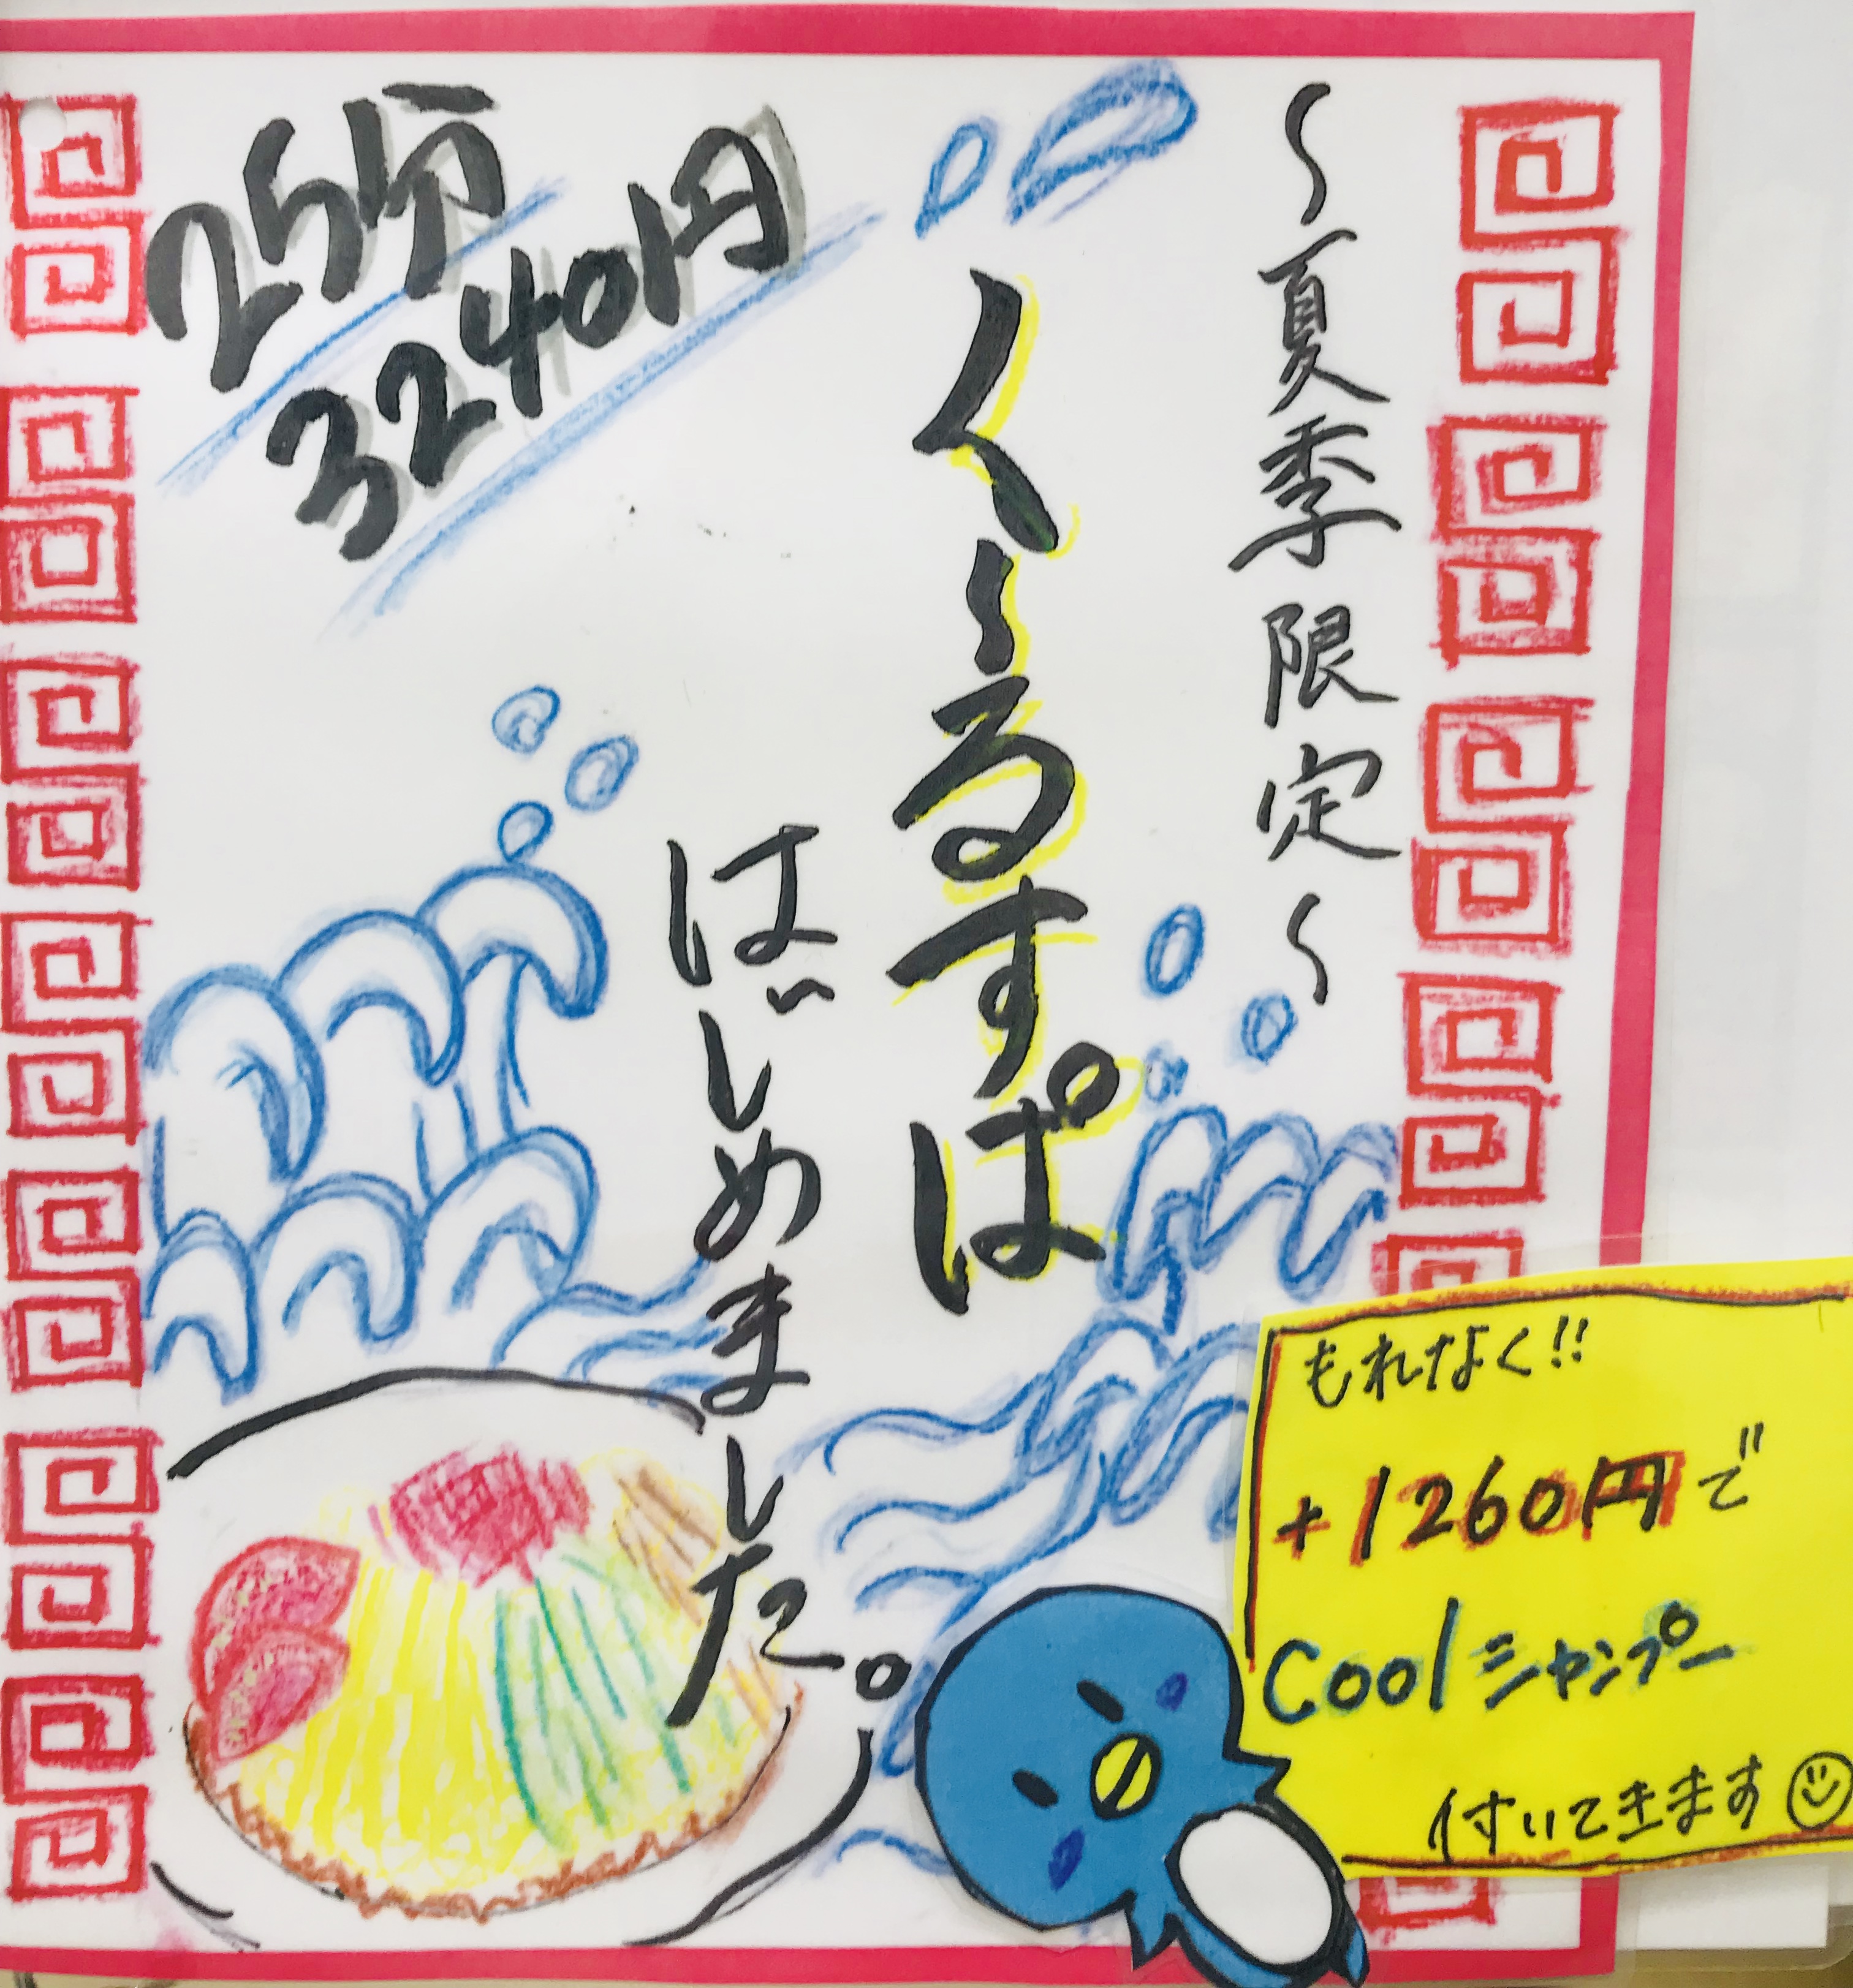 〜夏季限定〜
く〜るすぱ
はじめました。
25分
3240円
もれなく!!
+1260円で
Coolシャンプー
付いてきます